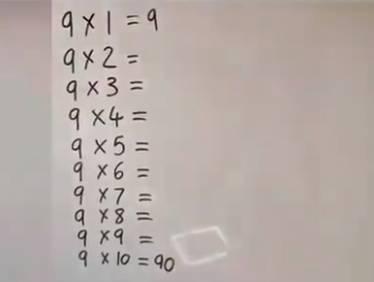 9 × 1 = 9
9 × 2 =
9 × 3 =
9 × 4 =
9 × 5 =
9 × 6 =
9 × 7 =
9 × 8 =
9 × 9 =
9 × 10 = 90